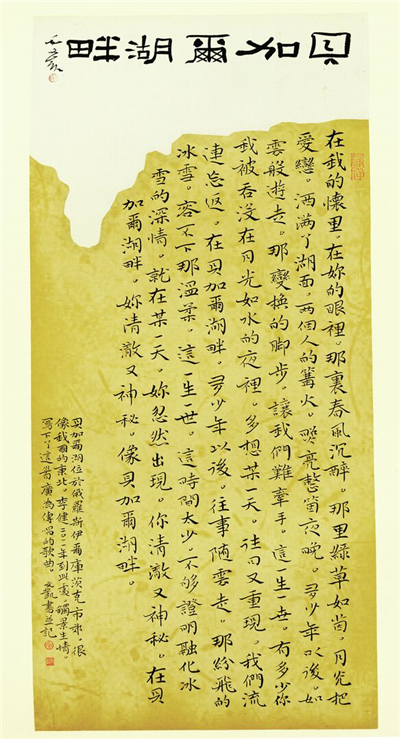 貝加爾湖畔
在我的懷里。在妳的眼裡。那裏春風沉醉。那里綠草如茵。月光把
愛戀。洒满了湖面。两個人的篝火。照亮整箇夜晚。多少年以後。如
雲般遊走。那變换的脚步。讓我們難牽手。這一生一世。有多少你
我被吞没在月光如水的夜裡。多想某一天。往日又重現。我們流
連忘返。在貝加爾湖畔。多少年以後。往事随雲走。那紛飛的
冰雪。容不下那溫柔。這一生一世。這時間太少。不够證明融化冰
雪的深情。就在某一天。妳忽然出現。你清澈又神秘。在貝
加爾湖畔。妳清澈又神秘。像貝加爾湖畔。
貝加爾湖位於俄羅斯伊爾庫茨克市郊。很
像我國的東北。李健二〇一一年到此處。觸景生情。
寫下了這首廣為傳唱的歌曲。書並記